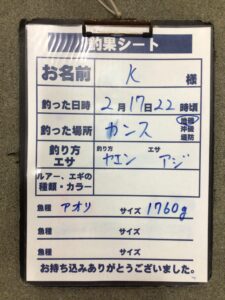 釣果シート
お名前 K 様
釣った日時 2月17日22時頃
釣った場所 カンス 地磯 沖磯 堤防
釣り方 エサ 釣り方 ヤエン エサ アジ
ルアー、エギの種類・カラー
魚種 アオリ サイズ 1760g
魚種 サイズ
魚種 サイズ
お持ち込みありがとうございました。